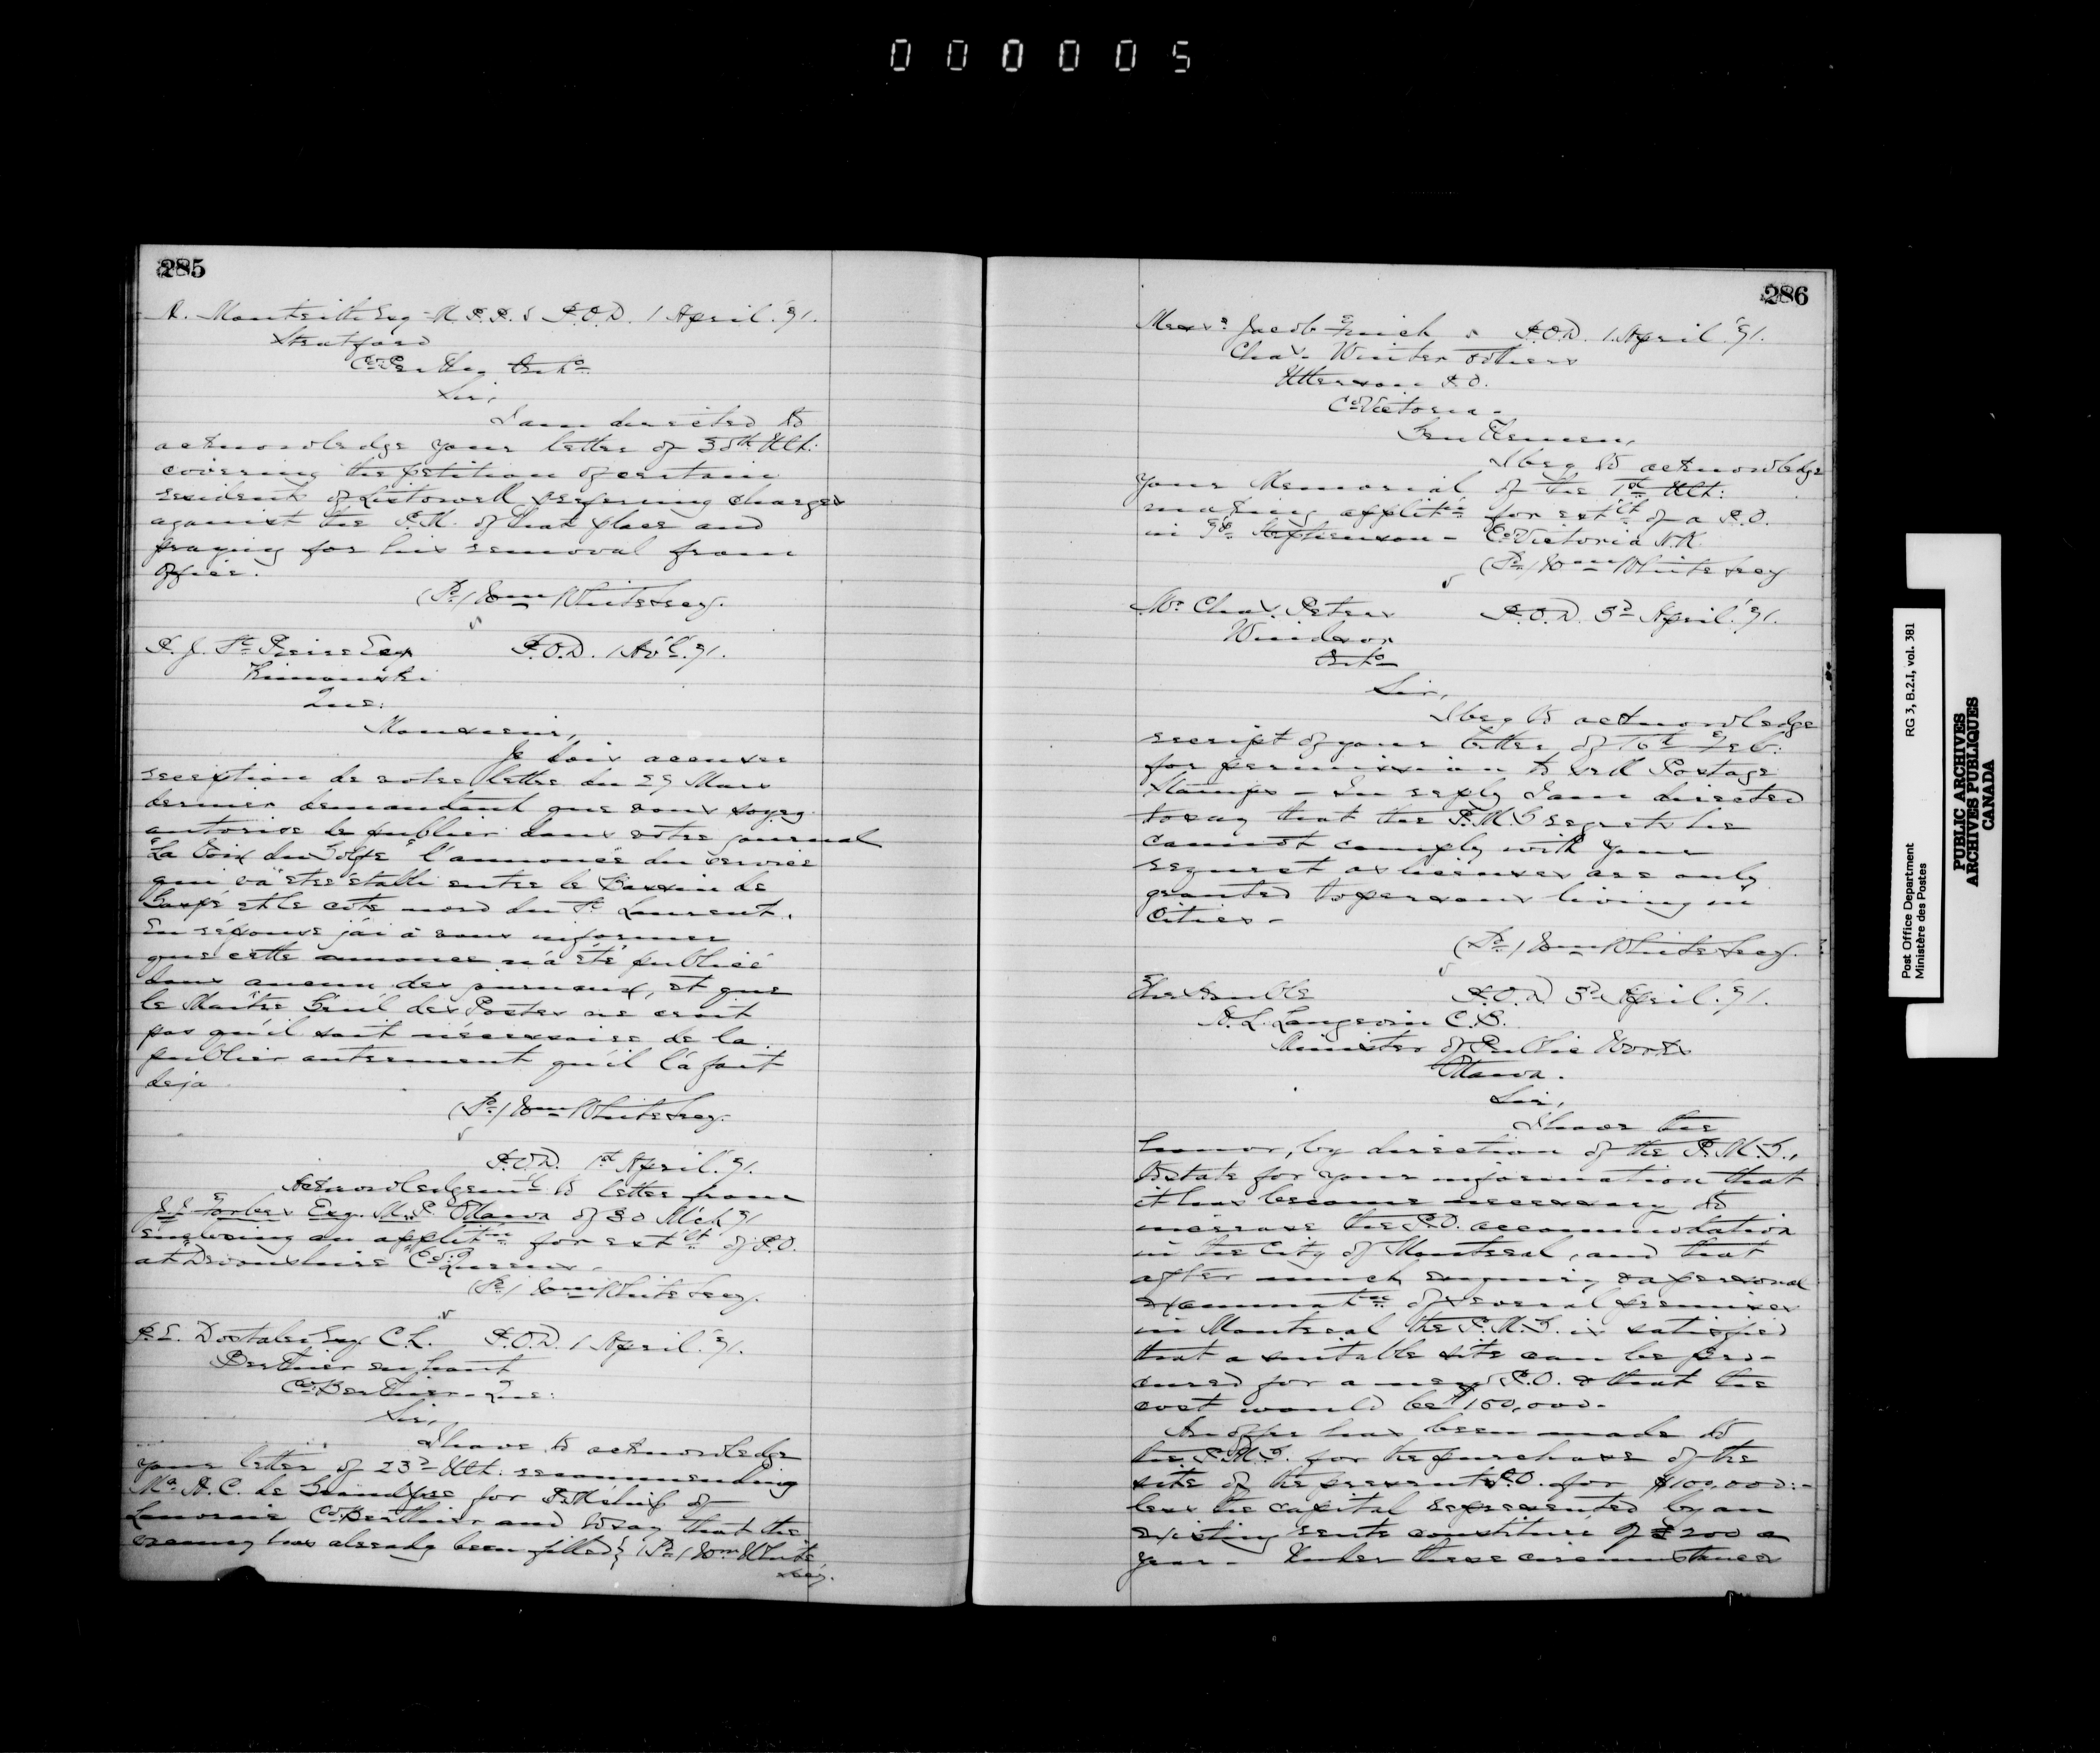 000005
285
A. Monteith Esq M.P.P. & P.O.D. 1 April '71.
Stratford
Co Perth, Onto
Sir,
I am directed to
acknowledge your letter of 30th Ult:
covering the petition of certain
residents of Listowell preferring charges
against the P.M. of that place and
praying for his removal from
office.
(Sd) Wm White Secy.
St Pierre Esq P.O.D. 1 Av'l. 71.
Rimouski
Que:
Monsieur,
Je dois accuser
reception de votre lettre du 29 Mars
dernier demandant que vous soyez
autorisé de publier dans votre journal
"La Voix du Golfe" l'annonce du service
qui va etre établi entre le Bassin de
Gaspé et le cote nord du St Laurent.
En réponse j'ai à vous informer
que cette annonce n'a été publiée
dans aucun des journaux, et que
le Maître Genl des Postes ne croit
pas qu'il soit nécessaire de la
publier autrement qu'il l'a fait
deja
(Sd) Wm White Secy.
P.O.D. 1st April '71.
Acknowledgemt to letter from
Forbes Esq. M.P. Ottawa of 30 Mch 71
enclosing an applitn for estblt of P.O.
at Devonshire Co Queens.
(Sd) Wm White Secy.
Dostaler Esq C.L. P.O.D. 1 April '71.
Berthier en haut
Co Berthier Que:
Sir,
I have to acknowledge
your letter of 23d Ult: recommending
Mr A. C. de Grandpre for P.M.ship of
Lanoraie Co Berthier and to say that the
vacancy has already been filled (Sd) Wm White
Secy.
286
Messrs Jacob & P.O.D. 1 April '71.
Chas. Winter & others
Utterson P.O.
Co Victoria -
Gentlemen,
I beg to acknowledge
your Memorial of the 1st Ult:
making applitn for estblt of a P.O.
in Tp Stephenson - Co Victoria N.R.
(Sd) Wm White Secy
Mr Chas. Peters P.O.D. 3d April '71.
Windsor
Onto
Sir,
I beg to acknowledge
receipt of your letter of 16th Feb:
for permission to sell Postage
Stamps - In reply I am directed
to say that the P.M.G regrets he
cannot comply with your
request as licenses are only
granted to persons living in
Cities -
(Sd) Wm White Secy.
The Honble P.O.D. 3d April '71.
H. L. Langevin C.B.
Minister of Public Works
Ottawa.
Sir,
I have the
honor, by direction of the P.M.G.,
to state for your information that
it has become necessary to
increase the P.O. accommodation
in the City of Montreal, and that
after much enquiry & a personal
examinatn of several premises
in Montreal the P.M.G. is satisfied
that a suitable site can be pro-
cured for a new P.O. & that the
cost would be $150,000.
An offer has been made to
the P.M.G. for the purchase of the
site of the present P.O. for $100,000:-
less the capital represented by an
existing rente constitué of £200 a
year - Under these circumstances
Post Office Department
Ministère des Postes
RG 3, B.2.I, vol. 381
PUBLIC ARCHIVES
ARCHIVES PUBLIQUES
CANADA